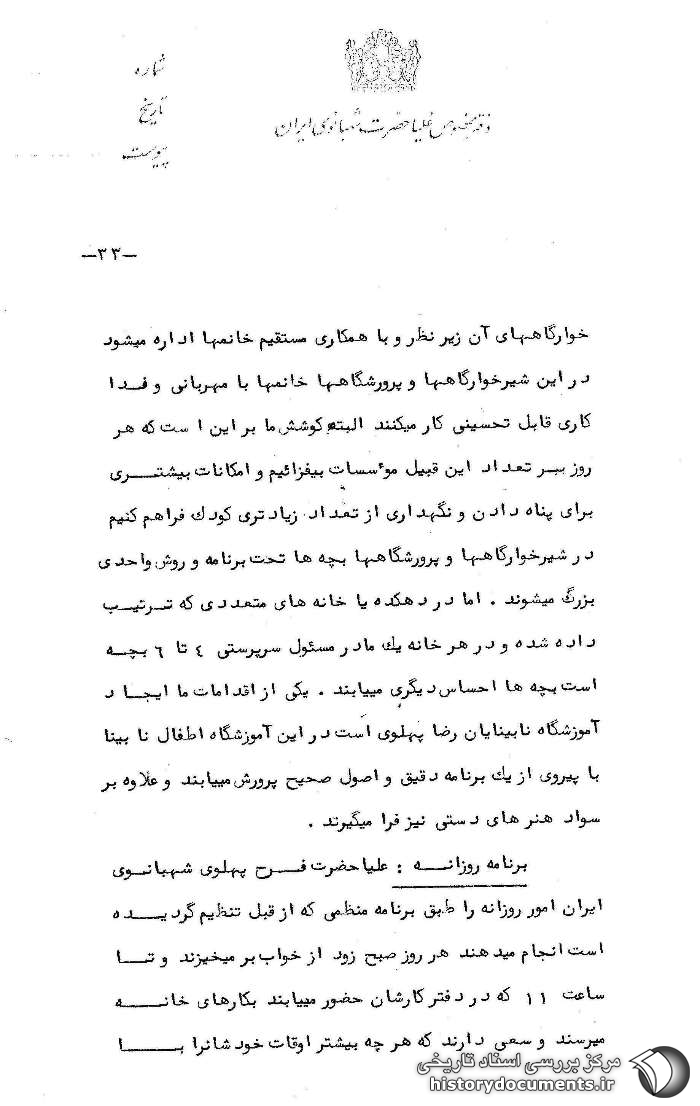 شماره
تاریخ
پیوست
دفتر مخصوص علیاحضرت شهبانوی ایران
—۳۳—
خوارگاههای آن زیر نظر و با همکاری مستقیم خانمها اداره میشود
در این شیرخوارگاهها و پرورشگاهها خانمها با مهربانی و فدا
کاری قابل تحسینی کار میکنند البته کوشش ما بر این است که هر
روز ببر تعداد این قبیل موٴسسات بیفزائیم و امکانات بیشتـــری
برای پناه دادن و نگهداری از تعداد زیادتری کودک فراهم کنیم
در شیرخوارگاهها و پرورشگاهها بچه ها تحت برنامه و روش واحدی
بزرگ میشوند . اما در دهکده یا خانه های متعددی که تــرتیـب
داده شده و در هر خانه یک مادر مسئول سرپرستی ٤ تا ٦ بچــه
است بچه ها احساس دیگری مییابند . یکی از اقدامات ما ایجا د
آموزشگاه نابینایان رضا پهلوی است در این آموزشگاه اطفال نا بینا
با پیروی از یک برنامه دقیق و اصول صحیح پرورش مییابند و علاوه بر
سواد هنر های دستی نیز فرا میگیرند .
برنامه روزانــــه : علیاحضرت فــرح پهلوی شهبانــوی
ایران امور روزانه را طبق برنامه منظمی که از قبل تنظیم گردیــده
است انجام میدهند هر روز صبح زود از خواب بر میخیزند و تــــا
ساعت ۱۱ که در دفتر کارشان حضور مییابند بکارهای خانـــه
میرسند و سعی دارند که هر چه بیشتر اوقات خود شانرا بــــا
مرکز بررسی اسناد تاریخی
historydocuments.ir